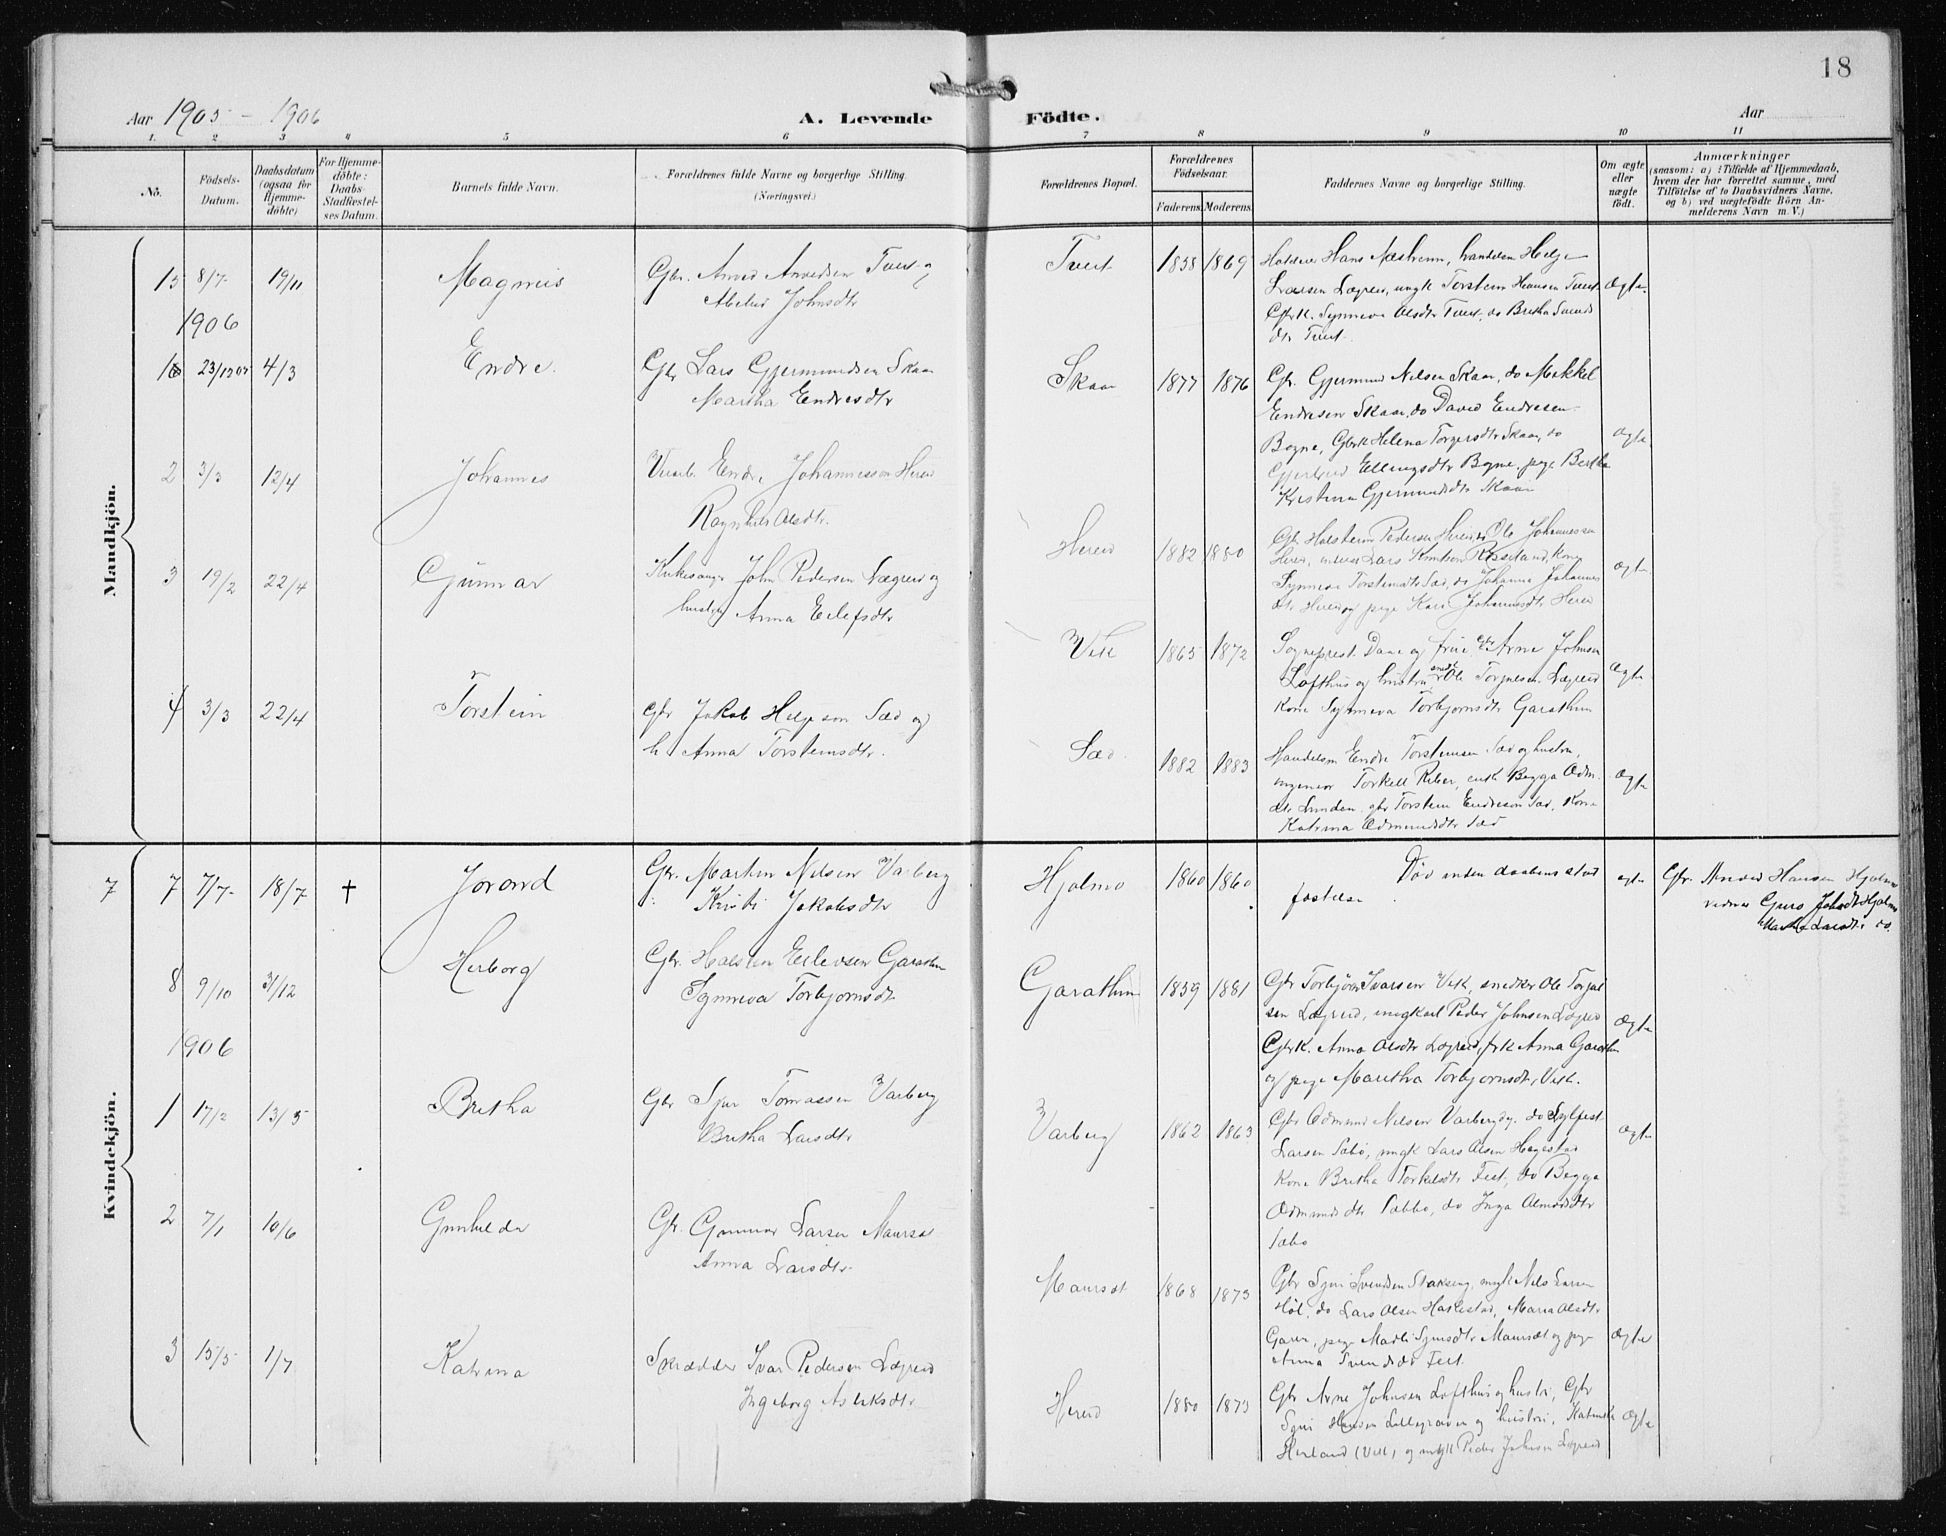 18
Aar 1905 - 1906
A. Levende Födte.
Aar
1. 2 3 4 5 6 7 8 9 10 11
No.
Födsels-Datum.
Daabsdatum (ogsaa for Hjemme-döbte)
For Hjemme-döbte: Daabs-Stadfæstel-ses Datum.
Barnets fulde Navn.
Forældrenes fulde Navne og borgerlige Stilling. (Næringsvei.)
Forældrenes Bopæl.
Forældrenes Födselsaar.
Faderens Moderens
Faddernes Navne og borgerlige Stilling.
Om ægte eller uægte födt.
Anmærkninger
(saasom: a) i Tilfælde af Hjemmedaab,
hvem der har forrettet samme, med
Tilföielse af to Daabsvidners Navne,
og b) ved uægtefödte Börn An-
melderens Navn m. V.)
Mandkjön.
15 8/7 19/11 Magnus
Gbr. Arved Arvedsen Tveit og
Johnsdtr
Tveit 1858 1869
Larsen Lægreid, ungk Torstein Hansen Tveit
Gbrk. Synneva Olsdtr Tveit, do Britha Svends
dtr Tveit.
Ægte.
1906
23/12 05 4/3 Endre.
Gbr Lars Gjermundsen Skaar
Martha Endresdtr
Skaar 1877 1876
Gbr. Gjermund Nilsen Skaar, do Mikkel
Endresen Skaar, do David Endresen
Bogne, Gbrk Helena Torgersdtr Skaar, do
Ellingsdtr Bogne, pige Bertha
Kristina Gjermundsdtr Skaar
Ægte
2 3/3 12/4 Johannes
Endre Johannesson Hereid
Ragnhild Olsdtr.
Hereid 1882 1880
Gbr Halstein Pedersen Hereid, Ole Johannessen
Hereid, Lars Knutson kone
Synneva Torsteinsdtr Sæd, do Johanna Johannes
dtr Hereid og pige Kari Johannesdtr Hereid
Ægte
3 19/2 22/4 Gunnar
Kirkesanger John Pedersen Lægreid og
hustru Anna Eilefsdtr
Vik 1865 1872
Sogneprest Dane og frue, Gbr Arne Johnsen
Lofthus og hustru, snedk Ole Torgilsen Lægreid
Kone Synneva Torbjornsdtr Garathun
Ægte
4 3/3 22/4 Torstein
Gbr Jakob Helgeson Sæd og
h. Anna Torsteinsdtr.
Sæd. 1882 1883
Handelsm Endre Torsteinsen Sæd og hustru,
Torkell Reber, enk Begga Odm.
dtr Lunden, gbr Torstein Endreson Sæd, Kone
Katrina Odmundsdtr Sæd
Ægte
Kvindekjön.
7 7 7/7 18/7 † Jorond
Gbr. Martin Nilsen Varberg
Kristi Jakobsdtr
Hjolmo 1860 1860
Död inden daabens stad
fæstelse.
ægte
Gbr. Hansen Hjolmo
vidner Guro Johsdtr Hjolmo
Larsdtr do.
8 9/10 31/12 Herborg
Gbr. Halsten Eilevsen Garathun
Synneva Torbjornsdtr
Garathun 1859 1881
Gbr Torbjörn Ivarsen Vik, snedker Ole Torgil
sen Lægreid, ungkarl Peder Johnsen Lægreid
Gbrk. Anna Olsdtr Lægreid, frk Anna Garathun
og pige Martha Torbjornsdtr, Vik.
Ægte
1906
1 17/2 13/5 Britha
Gbr Sjur Tomassen Varberg
Britha Larsdtr
Varberg 1862 1863
Gbr Odmund Nilsen Varberg, do Sylfest
Larsen Sæbö, ungk Lars Olsen Hagestad
Kone Britha Torkelsdtr Feit, do Begga
Odmundsdtr Sæbbö, do Inga Olmodsdtr
Sæbö
Ægte
2 7/1 10/6 Gunhilda
Gbr. Gunnar Larsen Maursæt
Anna Larsdtr
Maursæt 1868 1873
Gbr Sjur Svendsen Stokseng, ungk Nils Larsen
Höl, do Lars Olsen Hakestad, Maria Olsdtr
Garen, pige Madli Sjursdtr Maursæt og pige
Anna Svendsdtr Feit.
Ægte
3 15/5 1/7 Katrina
Skrædder Ivar Pedersen Lægreid
Ingeborg Aslaksdtr
Hereid 1880 1873
Gbr Arne Johnsen Lofthus og hustru, Gbr
Sjur Hansen Lillegraven og hustru, Katrina
Herland (Vik) og ungk Peder Johnsen Lægreid
Ægte